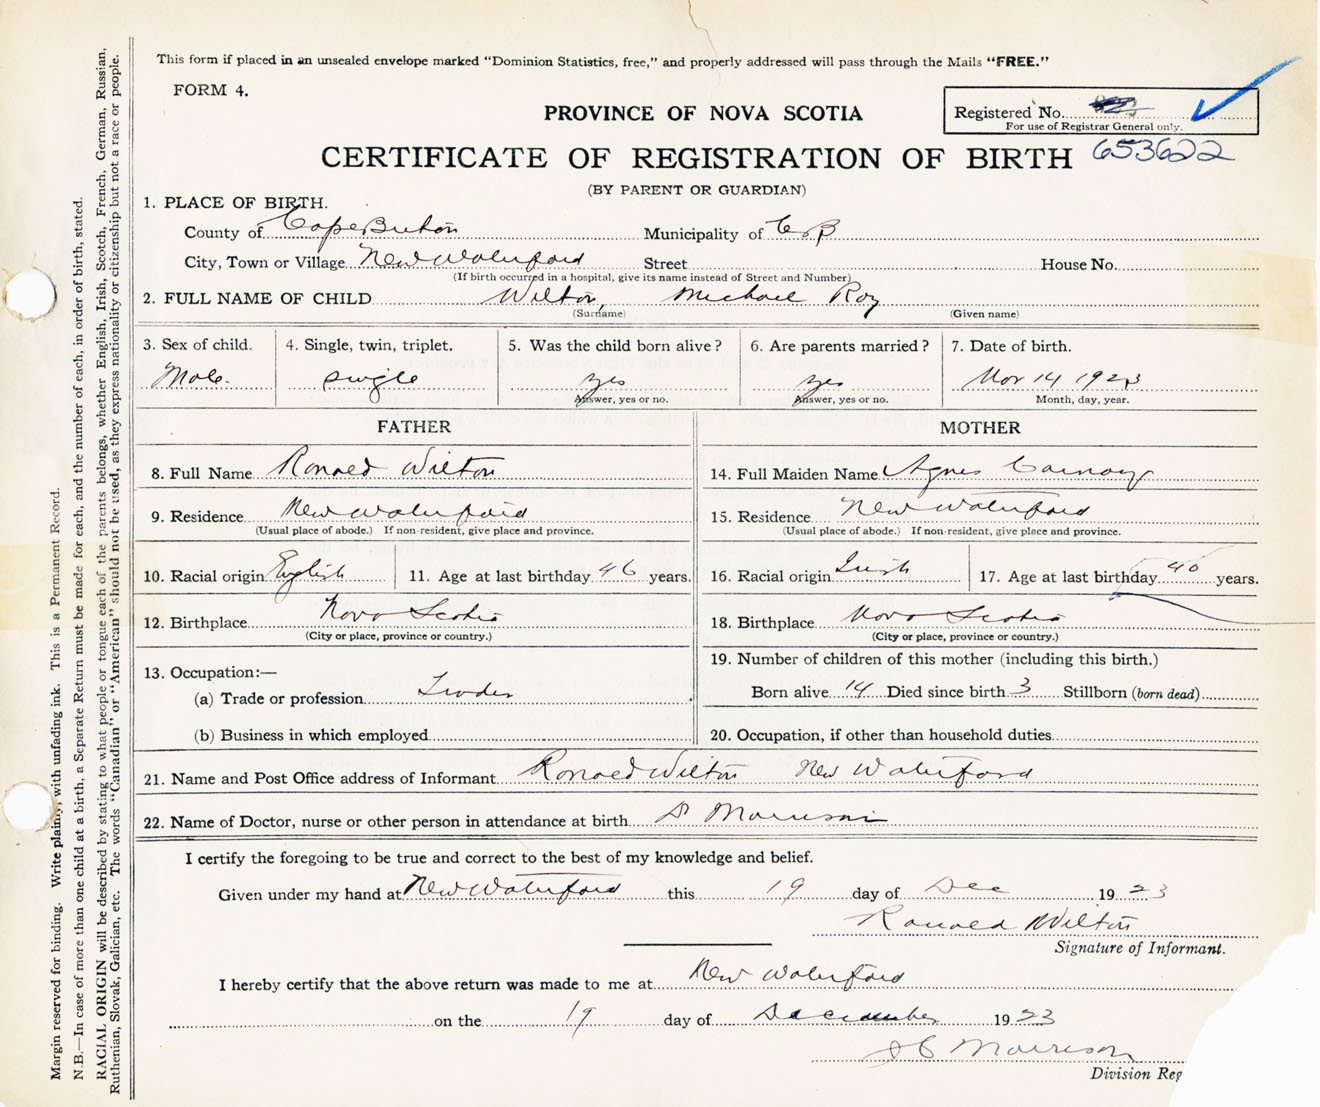 This form if placed in an unsealed envelope marked "Dominion Statistics, free," and properly addressed will pass through the Mails "FREE."
FORM 4.
PROVINCE OF NOVA SCOTIA
Registered No.
For use of Registrar General only.
CERTIFICATE OF REGISTRATION OF BIRTH 653622
(BY PARENT OR GUARDIAN)
1. PLACE OF BIRTH.
County of Cape Breton Municipality of C B
City, Town or Village New Waterford Street House No.
(If birth occurred in a hospital, give its name instead of Street and Number)
2. FULL NAME OF CHILD Wilton, Michael Roy
(Surname) (Given name)
3. Sex of child. 4. Single, twin, triplet. 5. Was the child born alive? 6. Are parents married? 7. Date of birth.
Male. single yes yes Nov 14 1923
Answer, yes or no. Answer, yes or no. Month, day, year.
FATHER MOTHER
8. Full Name Ronald Wilton 14. Full Maiden Name Agnes
9. Residence New Waterford 15. Residence New Waterford
(Usual place of abode.) If non-resident, give place and province. (Usual place of abode.) If non-resident, give place and province.
10. Racial origin English 11. Age at last birthday 46 years. 16. Racial origin Irish 17. Age at last birthday 40 years.
12. Birthplace Nova Scotia 18. Birthplace Nova Scotia
(City or place, province or country.) (City or place, province or country.)
13. Occupation:— 19. Number of children of this mother (including this birth.)
(a) Trade or profession Born alive 14 Died since birth 3 Stillborn (born dead)
(b) Business in which employed 20. Occupation, if other than household duties
21. Name and Post Office address of Informant Ronald Wilton New Waterford
22. Name of Doctor, nurse or other person in attendance at birth Morrison
I certify the foregoing to be true and correct to the best of my knowledge and belief.
Given under my hand at New Waterford this 19 day of Dec 1923
Ronald Wilton
Signature of Informant.
I hereby certify that the above return was made to me at New Waterford
on the 19 day of December 1923
Morrison
Division Reg
Margin reserved for binding. Write plainly, with unfading ink. This is a Permanent Record.
N.B.—In case of more than one child at a birth, a Separate Return must be made for each, and the number of each, in order of birth, stated.
RACIAL ORIGIN will be described by stating to what people or tongue each of the parents belongs, whether English, Irish, Scotch, French, German, Russian,
Ruthenian, Slovak, Galician, etc. The words "Canadian" or "American" should not be used, as they express nationality or citizenship but not a race or people.